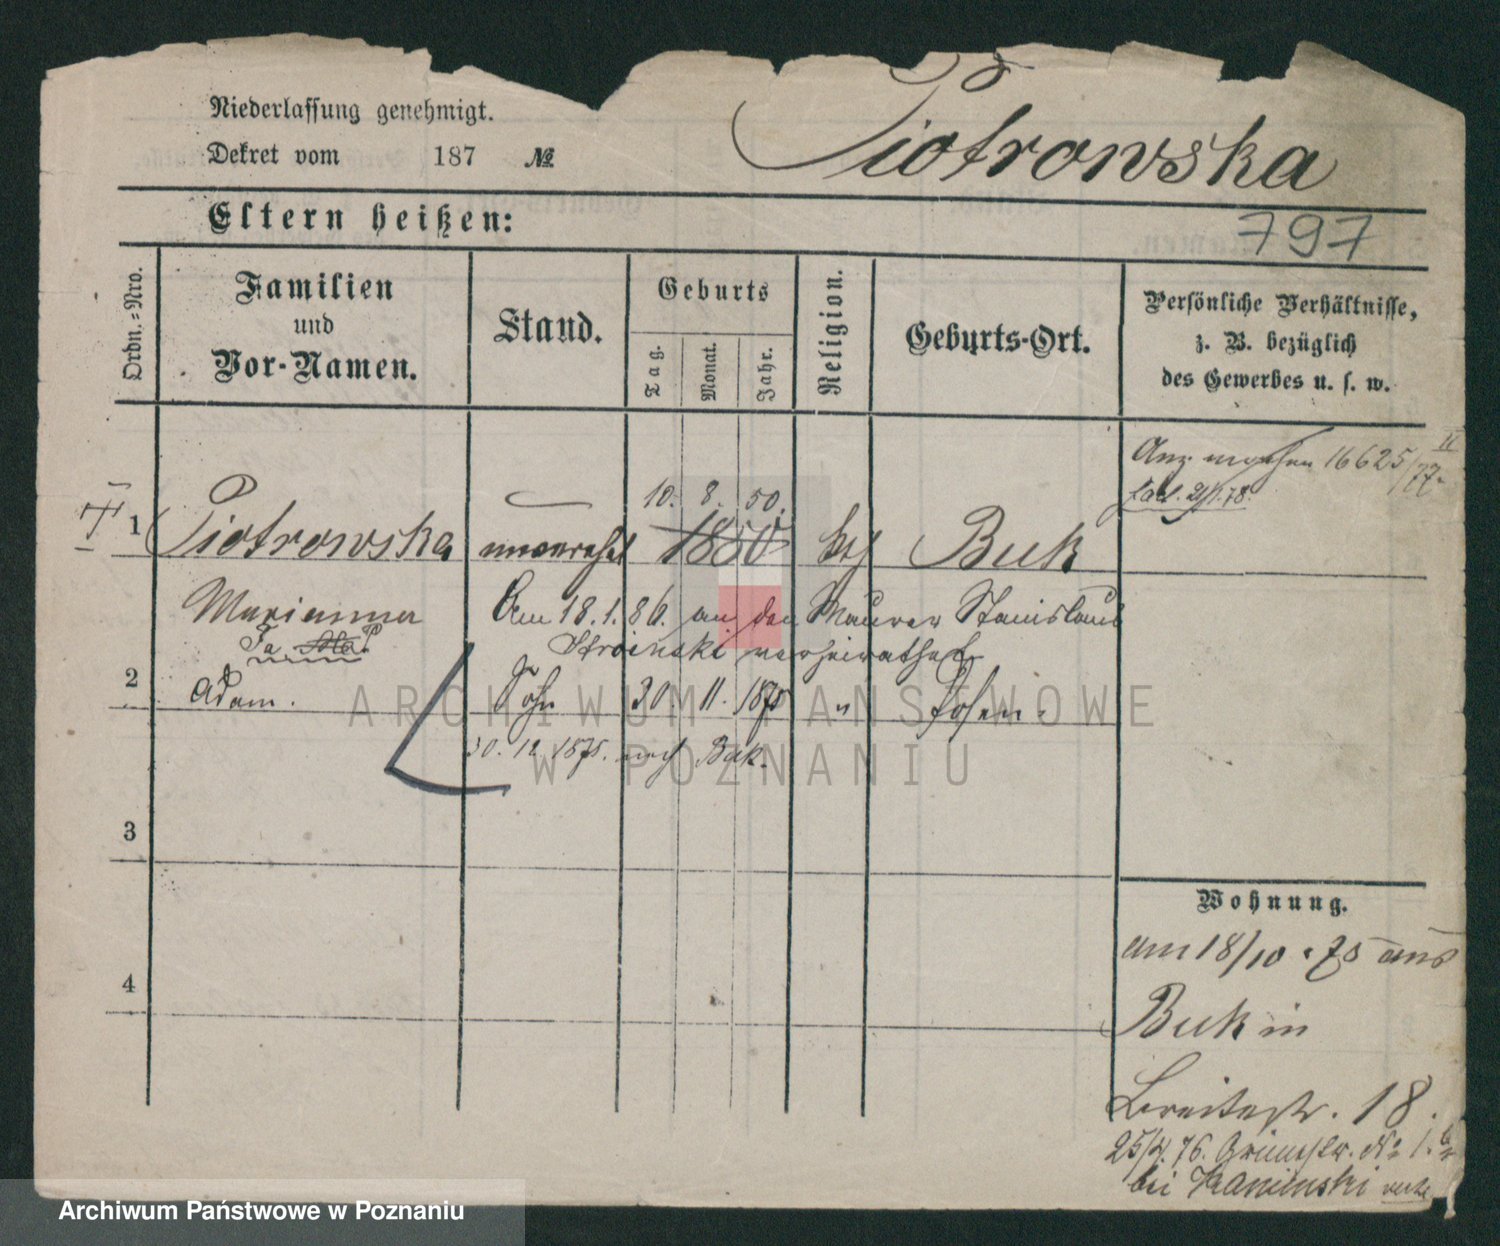 Niederlassung genehmigt.
Dekret vom 187 №
Piotrowska
Eltern heißen:
797
Ordn.-Nro.
Familien
und
Vor-Namen.
Stand.
Geburts
Tag.
Monat.
Jahr.
Religion.
Geburts-Ort.
Persönliche Verhältnisse,
z. B. bezüglich
des Gewerbes u. s. w.
16625/77. II
21/1.78.
10. 8. 50.
1 Piotrowska unverehel 1850 kth Buk
Marianna
Am 18.1.86. an den Maurer Stanislaus
Stroinski verheirathet
2 Adam. Sohn 30 11. 1875 " Posen.
30. 12 1875. nach Buk.
3
4
Wohnung.
am 18/10. 75 aus
Buk in
Breitestr. 18.
25/4. 76. № 1.
bei Kaminski
ARCHIWUM PAŃSTWOWE
W POZNANIU
Archiwum Państwowe w Poznaniu